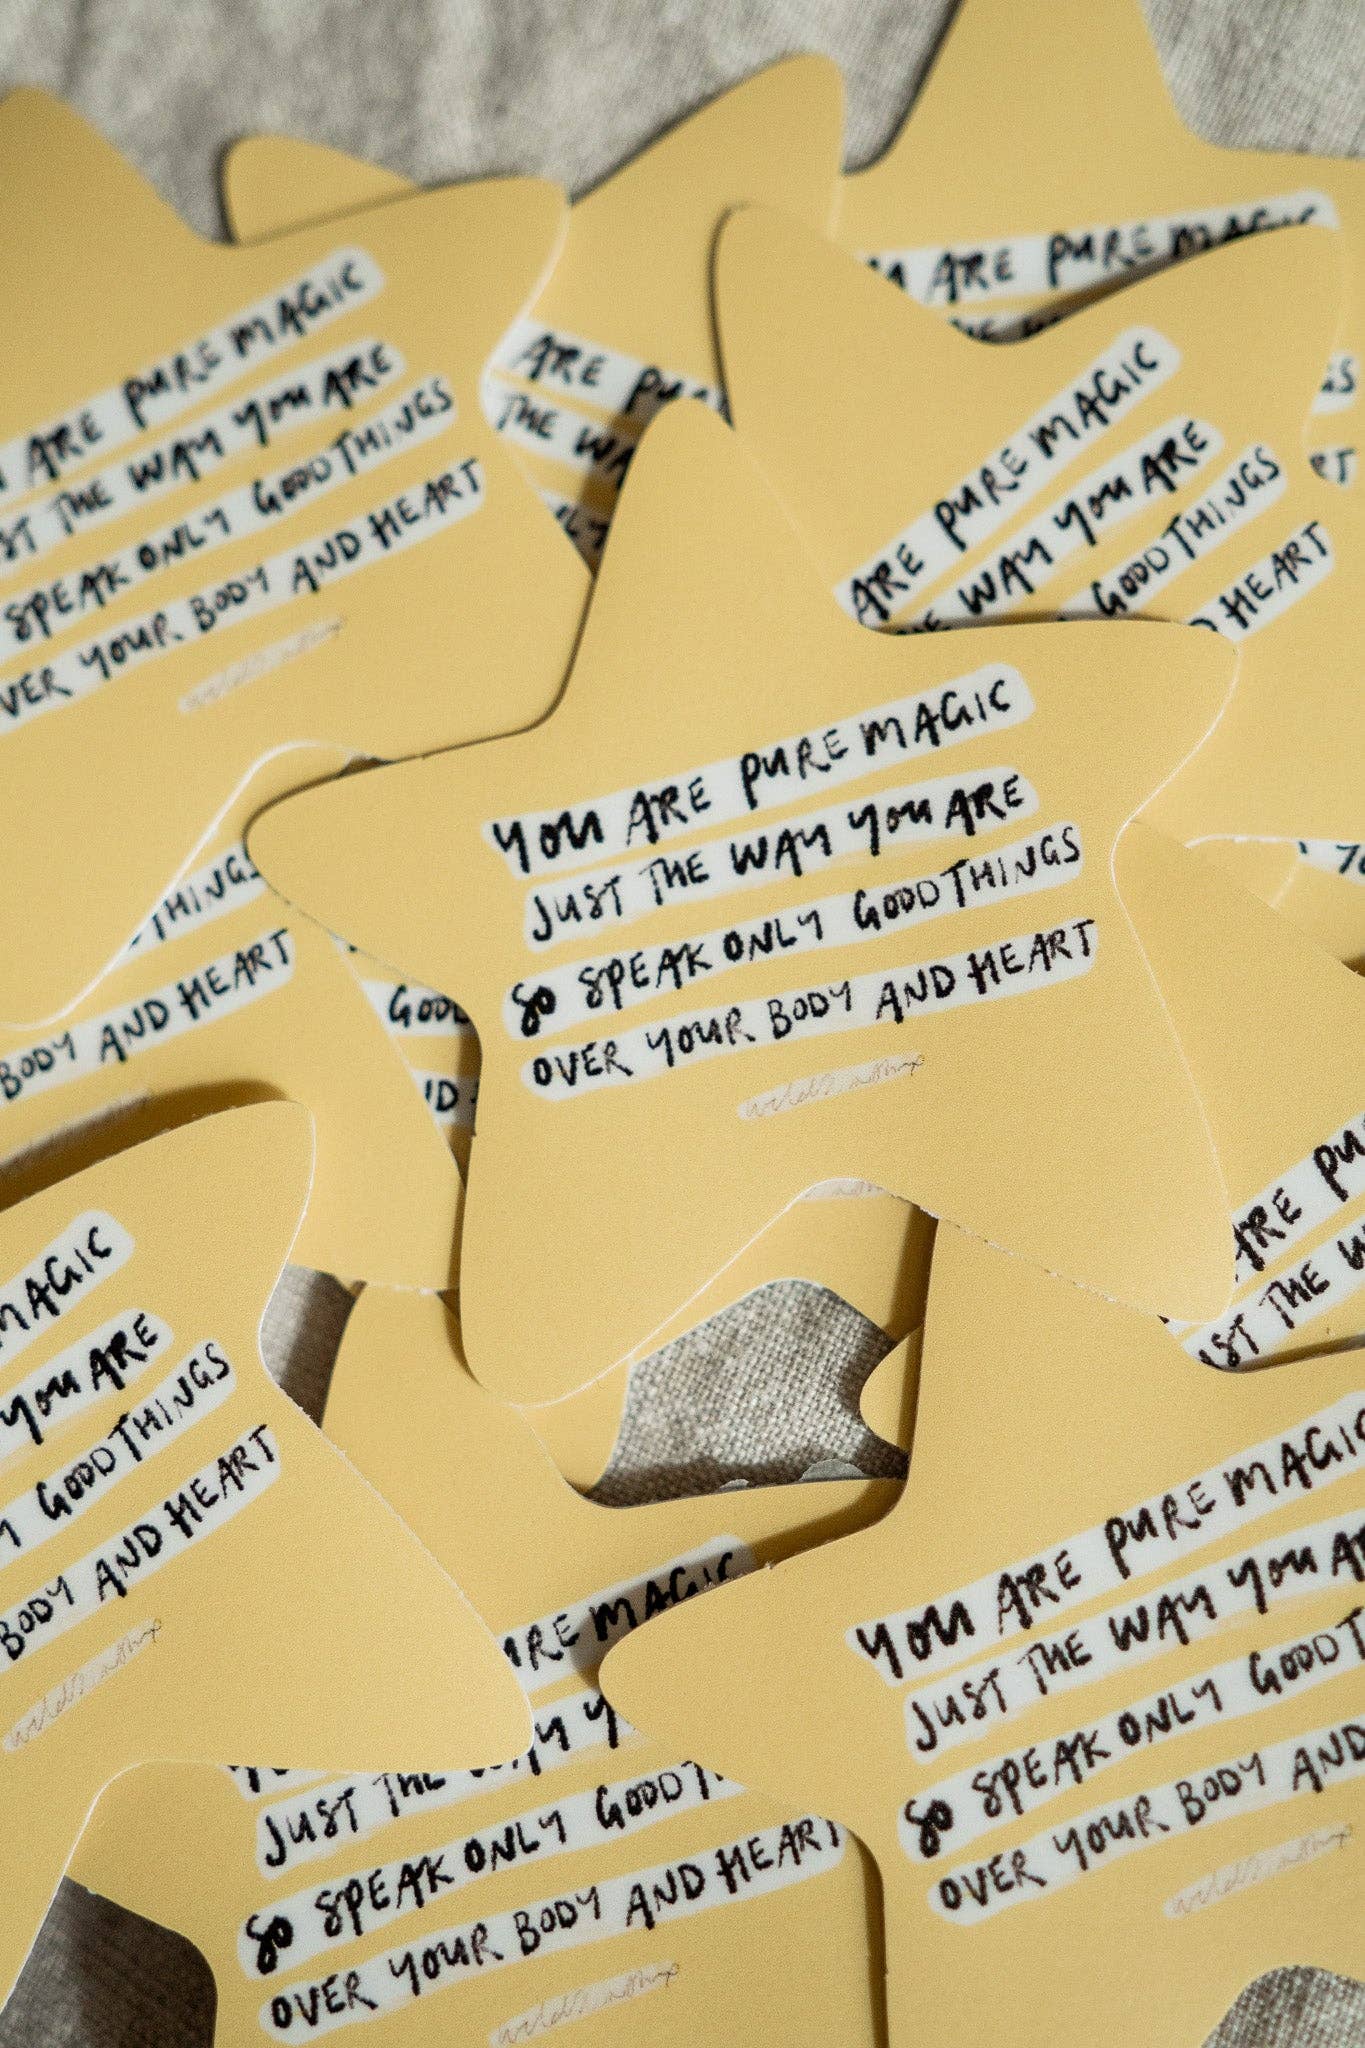 ARE PURE MAGIC
ARE PURE MAGIC
THE WAY YOU ARE
SPEAK ONLY GOOD THINGS
YOUR BODY AND HEART
ARE
THE
ARE PURE MAGIC
WAY YOU ARE
GOOD THINGS
HEART
YOU ARE PURE MAGIC
JUST THE WAY YOU ARE
SO SPEAK ONLY GOOD THINGS
OVER YOUR BODY AND HEART
THINGS
BODY AND HEART
GOOD
MAGIC
YOU ARE
GOOD THINGS
BODY AND HEART
ARE
THE
YOU ARE PURE MAGIC
JUST THE WAY YOU
SO SPEAK ONLY GOOD
OVER YOUR BODY AND
MAGIC
JUST THE
SO SPEAK ONLY GOOD
OVER YOUR BODY AND HEART